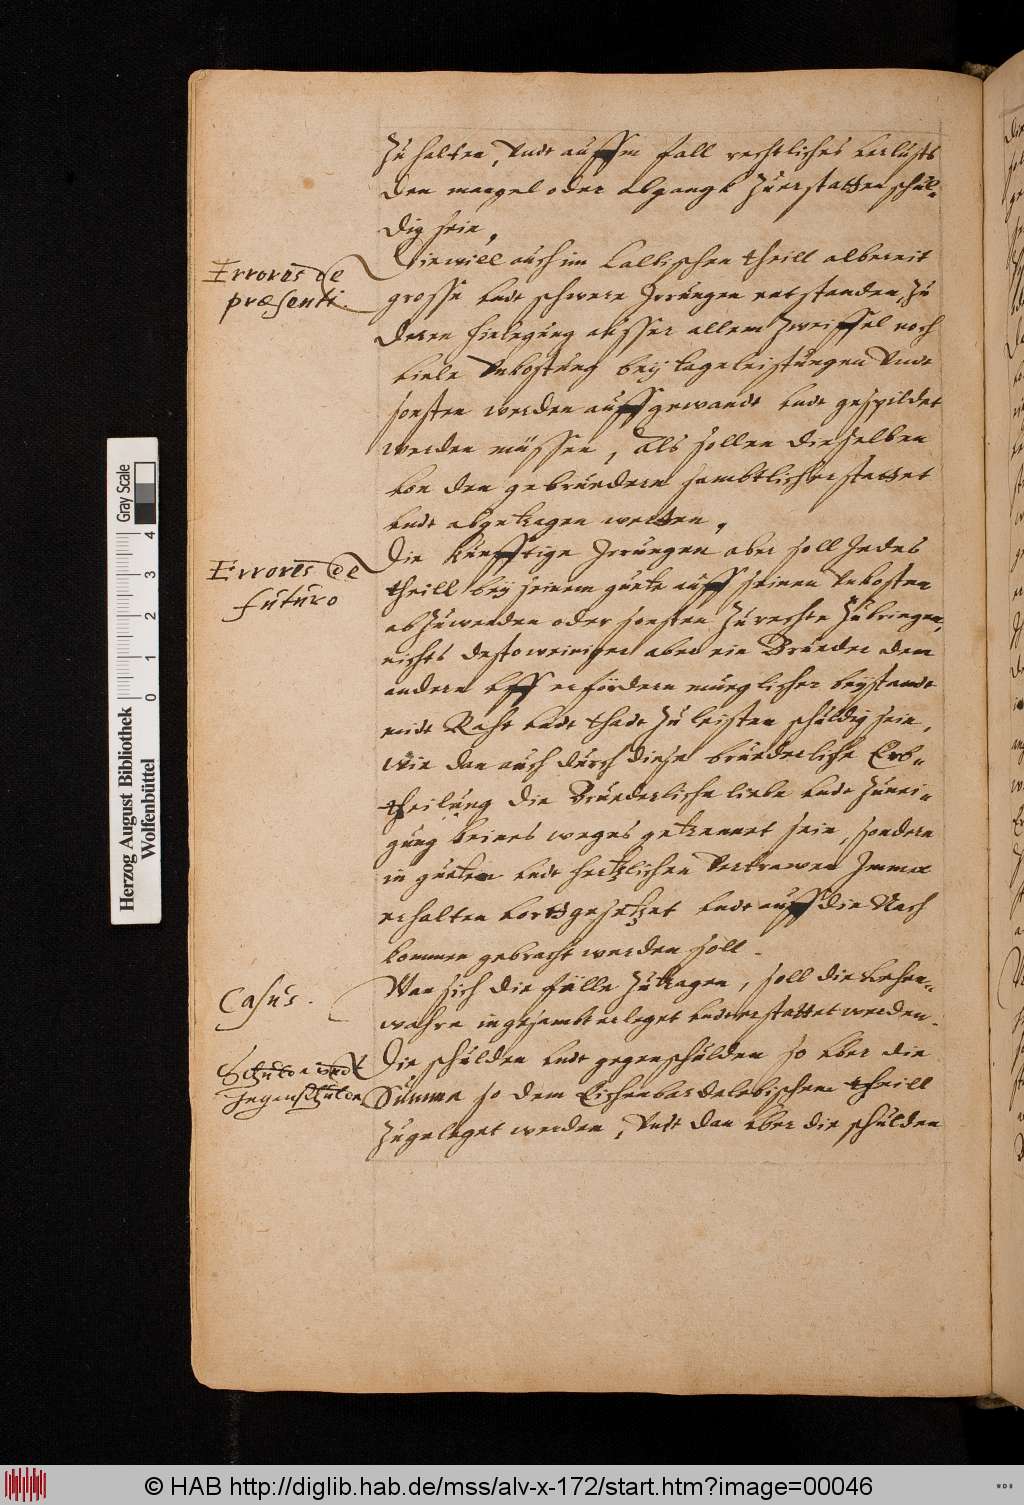 zu halten, Undt auff den fall rechtliches verlusts
den mangel oder abgangk zuerstatten schul-
dig sein,
Errores de
præsenti.
Diewill auch im Calbischen theill albereit
grosse undt schwere Irrungen entstanden, zu
deren hinlegung ausser allem zweiffel noch
viele Unkostung bey tageleistungen Undt
sonsten werden auffgewandt undt gespildet
werden müssen, Als sollen dieselben
von den gebruedern sambtlich erstattet
undt abgetragen werden,
Errores de
futuro
Die künfftige Irrungen aber soll Jedes
theill bey seinem guete auff seinen Unkosten
abzuwenden oder sonsten zu rechte zubringen,
nichts destoweiniger aber ein Brueder dem
andern uff erfördern müeglicher beystandt
midt Raht undt thadt zu leisten schuldig sein,
wie dan auch durch diese brüederliche Erb-
theilung die Brüederliche liebe undt zunei-
gung keines weges getrennet sein, sondern
in gueten undt hertzlichen Vertrawen Immer
erhalten vortgesetzet undt auff die Nach
kommen gebracht werden soll.
Casus.
Wan sich die fälle zutragen, soll die Lehen-
wahre ingesambt erleget undt erstattet werden.
Schulde undt
Jegenschulde
Die schulden undt gegenschulden so uber die
Summa so dem Eichenbardelebischen theill
zugeleget werden, Undt dan uber die schulden
Herzog August Bibliothek
Wolfenbüttel
0 1 2 3 4
Gray Scale
© HAB http://diglib.hab.de/mss/alv-x-172/start.htm?image=00046